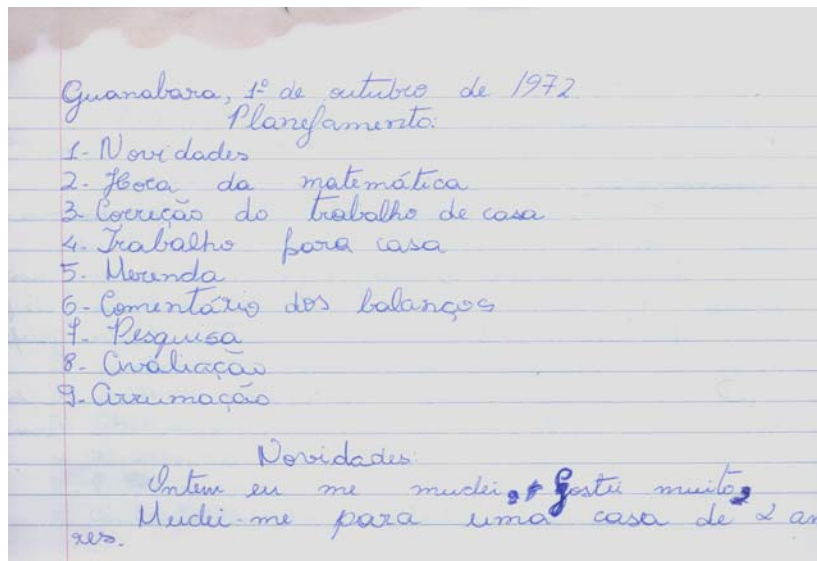 Guanabara, 1º de outubro de 1972
Planejamento:
1- Novidades
2- Hora da matemática
3- Correção do trabalho de casa
4- Trabalho para casa
5- Merenda
6- Comentário dos balanços
7- Pesquisa
8- Avaliação
9- Arrumação
Novidades:
Ontem eu me mudei, Gostei muito,
Mudei-me para uma casa de 2 an
res.